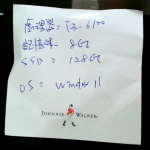 處理器= i3-6100
記憶体= 8G
SSD = 128G
OS = Window 11
JOHNNIE WALKER